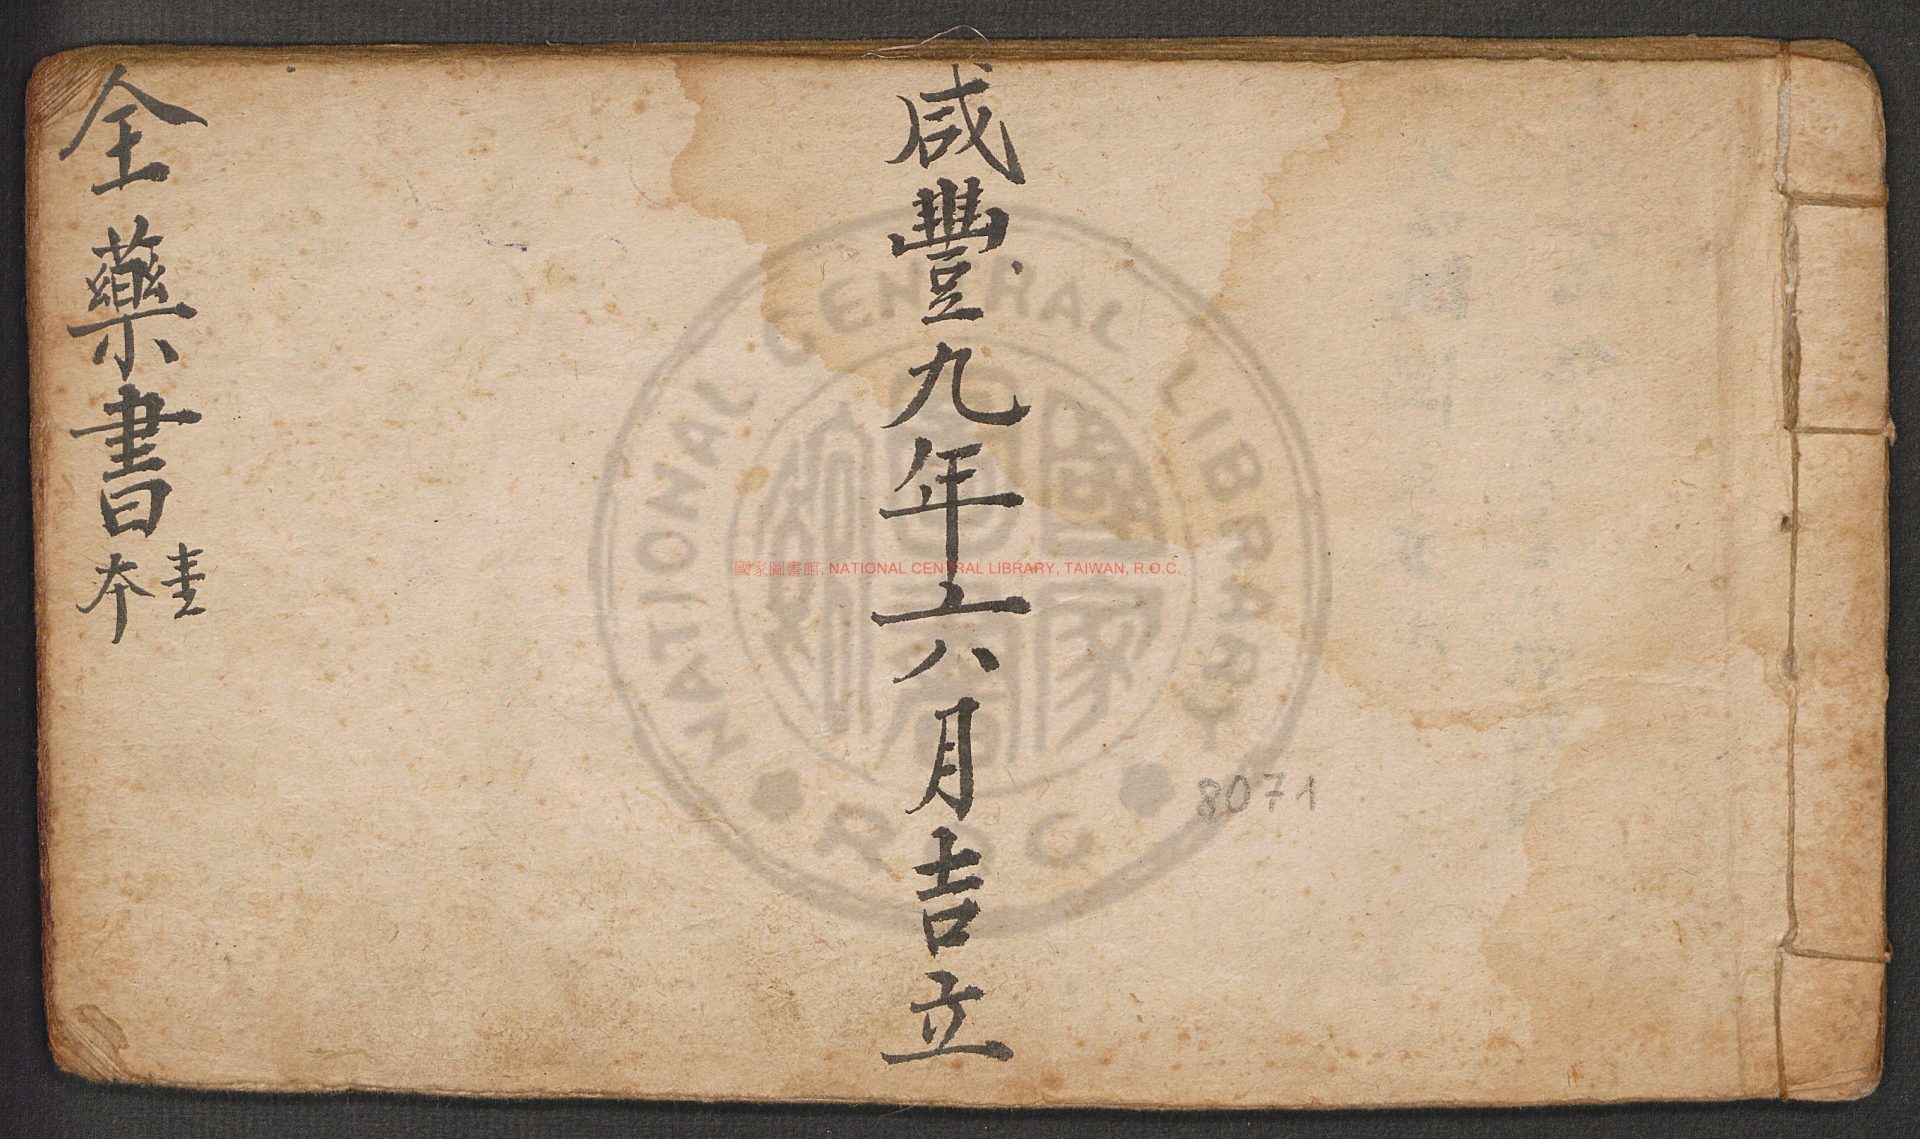 咸豐九年六月吉立
全藥書
圭
本
8071
國家圖書館, NATIONAL CENTRAL LIBRARY, TAIWAN, R.O.C.
NATIONAL CENTRAL LIBRARY
R.O.C